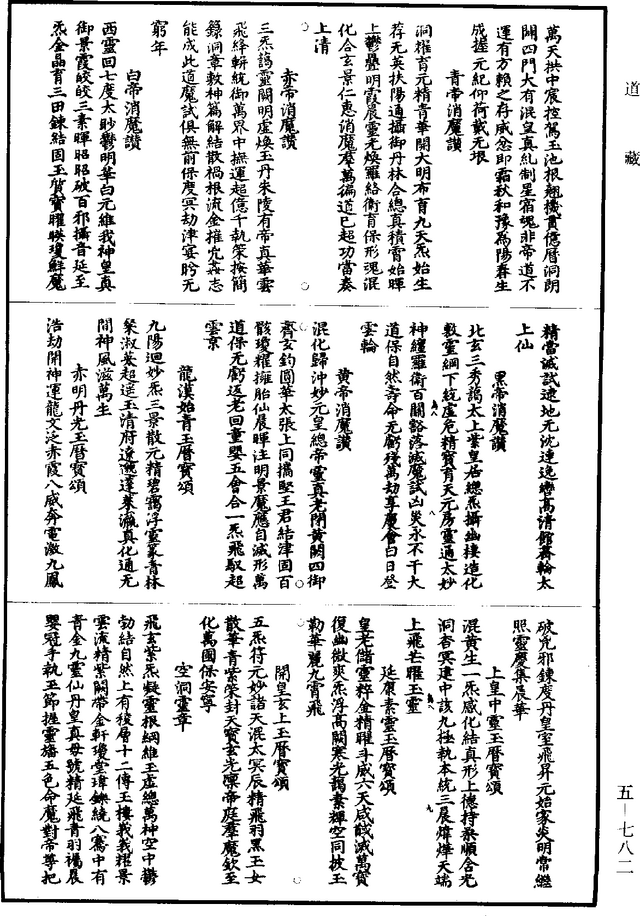 道藏
萬天拱中宸控駕玉池根翹機貫億曆洞朗
開四門大有混皇真紀制星宿魂非帝道不
運有方賴之存威忿即霜秋和豫為陽春生
成握元紀仰荷戴无垠
青帝消魔讚
洞耀育元精青華開大明布育九天炁始生
荐无英扶陽通攝御丹林合總真積霄始暉
上鬱疊明霞晨靈光煥羅絡衛育保形魂混
化合玄景仁惠消魔摩萬徧道已超功當奏
上清
赤帝消魔讚
三炁藹靈關明虛煥玉丹朱陵有帝真華雲
飛絳輧統御萬界中撫運超億千執策按簡
錄洞章敕神篇解結散禍根流金摧兇姦志
能成此道魔試俱無前保度冥劫津宴盻无
窮年
白帝消魔讚
西靈回七度太眇鬱明華白元維我神皇真
御景霞皎皎三素暉昭昭破百邪攝音延至
炁金晶育三田鍊結固玉質寶曜映瓊鮮魔
精當誠試逮地无沈連逸轡高清館蒼輪太
上仙
黑帝消魔讚
北玄三秀藹太上業皇居總炁攝幽棲造化
敷靈綱下統虛危精寶育天元房靈通太妙
神纏羅衛百關豁落滅魔試凶災永不干大
道保自然壽命无虧殘萬劫享慶會白日登
雲輪
黃帝消魔讚
混化歸沖妙元皇總帝靈真老閉黃關四御
齊玄鈞圓華太張上同攜堅玉君結津固百
骸瓊耀擁胎仙晨暉注明景魔應自滅形萬
道保无虧返老回童嬰五會合一炁飛馭超
雲京
龍漢始青玉曆寶頌
九陽迴妙炁三景散元精碧藹浮靈篆青林
粲淑葵超遥玉清府遼邈達蓁瀛真化通无
間神風滋萬生
赤明丹光玉曆寶頌
浩劫開神運龍文泛赤霞八威奔電激九鳳
破兇邪鍊度丹皇室飛昇元始家炎明常繼
照靈慶集晨華
上皇中靈玉曆寶頌
混黃生一炁感化結真形上德持柔順含光
洞杳冥連中該九極執本統三晨煒燁天端
上飛芒曜玉靈
延康素靈玉曆寶頌
皇老儲靈粹金精曜斗威六天咸馘滅萬寶
復幽微爽炁浮高闕寒光藹素輝空同披玉
勒華麗九霄飛
開皇玄上玉曆寶頌
五炁符元妙諳天混太冥辰精飛羽黑玉女
散華青素榮封天寶玄光凜帝庭羣魔欽至
化萬國保安寧
空洞靈章
飛玄紫炁凝靈根綱維玉虛總萬神空中鬱
勃結自然上有稜層十二傳玉樓義義耀景
雲流精紫闕帶金軒瓊堂瑋鑠繞八騫中有
青金九靈仙丹皇真母號精延飛青羽褐晨
嬰冠手執玉節握靈旛五色命魔對帝尊把
五—七八二